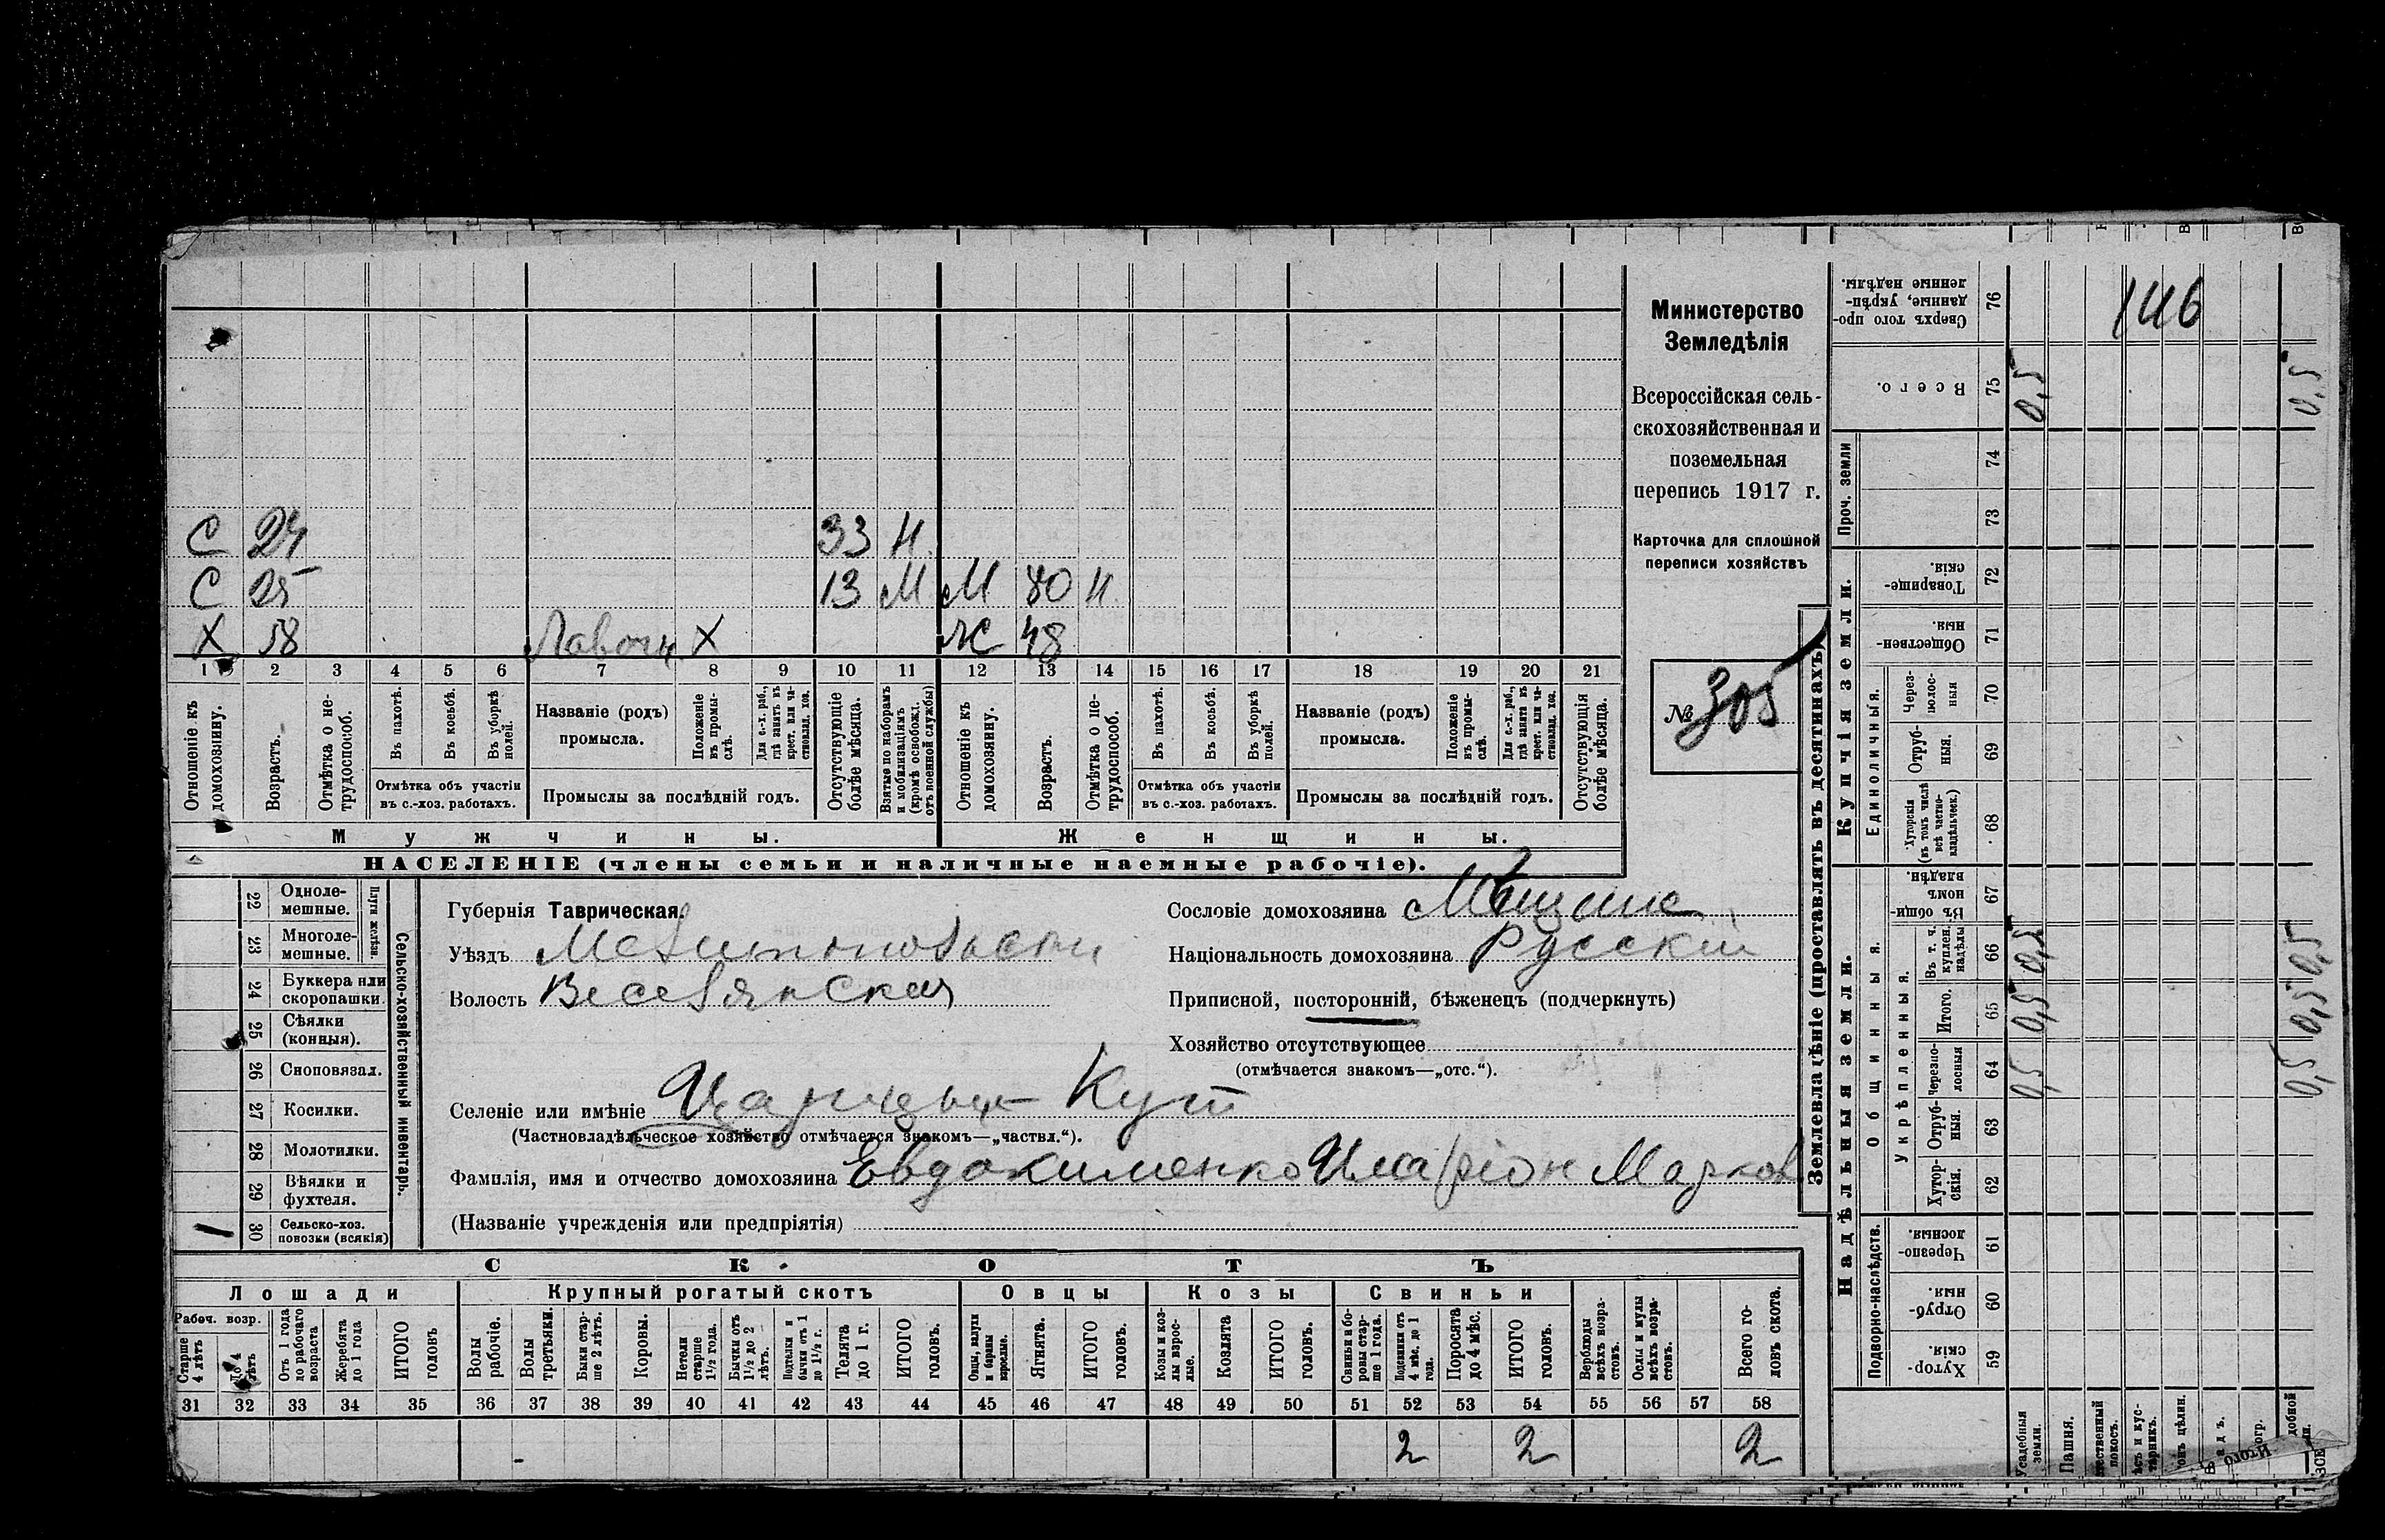 С 24 33 Н.
С 25 13 М М 80 Н.
Х 58 Лавочн. Х Ж 48
1 2 3 4 5 6 7 8 9 10 11 12 13 14 15 16 17 18 19 20 21
Отношеніе къ домохозяину.
Возрастъ.
Отмѣтка о не-трудоспособ.
Въ пахотѣ.
Въ косьбѣ.
Въ уборкѣ полей.
Отмѣтка объ участіи
въ с.-хоз. работахъ.
Названіе (родъ)
промысла.
Положеніе въ промы-слѣ.
Для с.-х. раб., гдѣ занятъ въ крест. или ча-стновлад. хоз.
Промыслы за послѣдній годъ.
Отсутствующіе болѣе мѣсяца.
Взятые по наборамъ и мобилизаціямъ (кромѣ освобожд. отъ военной службы)
Отношеніе къ домохозяину.
Возрастъ.
Отмѣтка о не-трудоспособ.
Въ пахотѣ.
Въ косьбѣ.
Въ уборкѣ полей.
Отмѣтка объ участіи
въ с.-хоз. работахъ.
Названіе (родъ)
промысла.
Положеніе въ промы-слѣ.
Для с.-х. раб., гдѣ занята въ крест. или ча-стновлад. хоз.
Промыслы за послѣдній годъ.
Отсутствующія болѣе мѣсяца.
Мужчины. Женщины.
НАСЕЛЕНІЕ (члены семьи и наличные наемные рабочіе).
Министерство
Земледѣлія
Всероссійская сель-
скохозяйственная и
поземельная
перепись 1917 г.
Карточка для сплошной
переписи хозяйствъ
№ 305
22 Одноле-мешные.
23 Многоле-мешные.
Плуги желѣзн.
24 Буккера или скоропашки.
25 Сѣялки (конныя).
26 Сноповязал.
27 Косилки.
28 Молотилки.
29 Вѣялки и фухтеля.
30 Сельско-хоз. повозки (всякія)
1
Сельско-хозяйственный инвентарь.
Губернія Таврическая.
Уѣздъ Мелитопольскій
Волость Веселянская
Сословіе домохозяина Мѣщане
Національность домохозяина Русскій
Приписной, посторонній, бѣженецъ (подчеркнуть)
Хозяйство отсутствующее
(отмѣчается знакомъ—„отс.“).
Селеніе или имѣніе Царицынъ Кутъ
(Частновладѣльческое хозяйство отмѣчается знакомъ—„частвл.“).
Фамилія, имя и отчество домохозяина Евдокименко Иларіон Марков
(Названіе учрежденія или предпріятія)
СКОТЪ
Лошади Крупный рогатый скотъ Овцы Козы Свиньи
Рабоч. возр.
Старше 4 лѣтъ
До 4 лѣтъ
Отъ 1 года до рабочаго возраста
Жеребята до 1 года
ИТОГО головъ
Волы рабочіе.
Волы третьяки.
Быки стар-ше 2 лѣтъ.
Коровы.
Нетели старше 1½ года.
Бычки отъ 1½ до 2 лѣтъ.
Подтелки и бычки отъ 1 до 1½ г.
Телята до 1 г.
ИТОГО головъ.
Овцы, валухи и бараны взрослые.
Ягнята.
ИТОГО головъ.
Козы и коз-лы взрос-лые.
Козлята
ИТОГО головъ.
Свиньи и бо-ровы стар-ше 1 года.
Подсвинки отъ 4 мѣс. до 1 года.
Поросята до 4 мѣс.
ИТОГО головъ.
Верблюды всѣхъ возра-стовъ.
Ослы и мулы всѣхъ возра-стовъ.
Всего го-ловъ скота.
31 32 33 34 35 36 37 38 39 40 41 42 43 44 45 46 47 48 49 50 51 52 53 54 55 56 57 58
2 2 2
Землевладѣніе (проставлять въ десятинахъ)
146
Сверхъ того про-данные, укрѣп-ленные надѣлы. 76
Всего. 75 0,5 0,5
Проч. земли 74 73
Купчія земли.
Товарище-скія. 72
Обществен-ныя. 71
Единоличныя.
Через-полос-ныя 70
Отруб-ныя. 69
Хуторскія (въ томъ числѣ всѣ частно-владѣльческ.) 68
Надѣльныя земли.
Общинныя.
Въ общин-номъ владѣн. 67
Укрѣпленныя.
Въ т. ч. куплен. надѣлы 66 0,5 0,5
Итого. 65 0,5 0,5
Черезпо-лосныя 64 0,5 0,5
Отруб-ныя. 63
Хутор-скія. 62
Подворно-наслѣдств.
Черезпо-лосныя. 61
Отруб-ныя. 60
Хутор-скія. 59
Усадебныя земли.
Пашня.
Итого